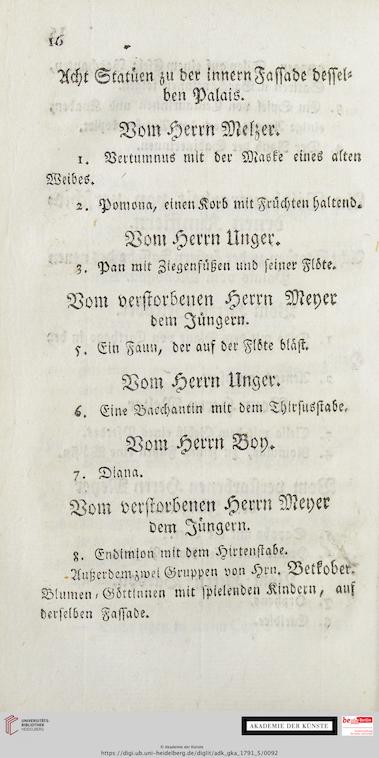 16
Acht Statüen zu der innern Fassade dessel-
ben Palais.
Vom Herrn Melzer.
1. Vertumnus mit der Maske eines alten
Weibes.
2. Pomona, einen Korb mit Früchten haltend.
Vom Herrn Unger.
3. Pan mit Ziegenfüßen und seiner Flöte.
Vom verstorbenen Herrn Meyer
dem Jüngern.
5. Ein Faun, der auf der Flöte bläst.
Vom Herrn Unger.
6. Eine Bacchantin mit dem Thirsusstabe.
Vom Herrn Boy.
7. Diana.
Vom verstorbenen Herrn Meyer
dem Jüngern.
8. Endimion mit dem Hirtenstabe.
Außerdem zwei Gruppen von Hrn. Betkober.
Blumen-Göttinnen mit spielenden Kindern, auf
derselben Fassade.
UNIVERSITÄTS-
BIBLIOTHEK
HEIDELBERG
AKADEMIE DER KÜNSTE
© Akademie der Künste
https://digi.ub.uni-heidelberg.de/diglit/adk_gka_1791_5/0092